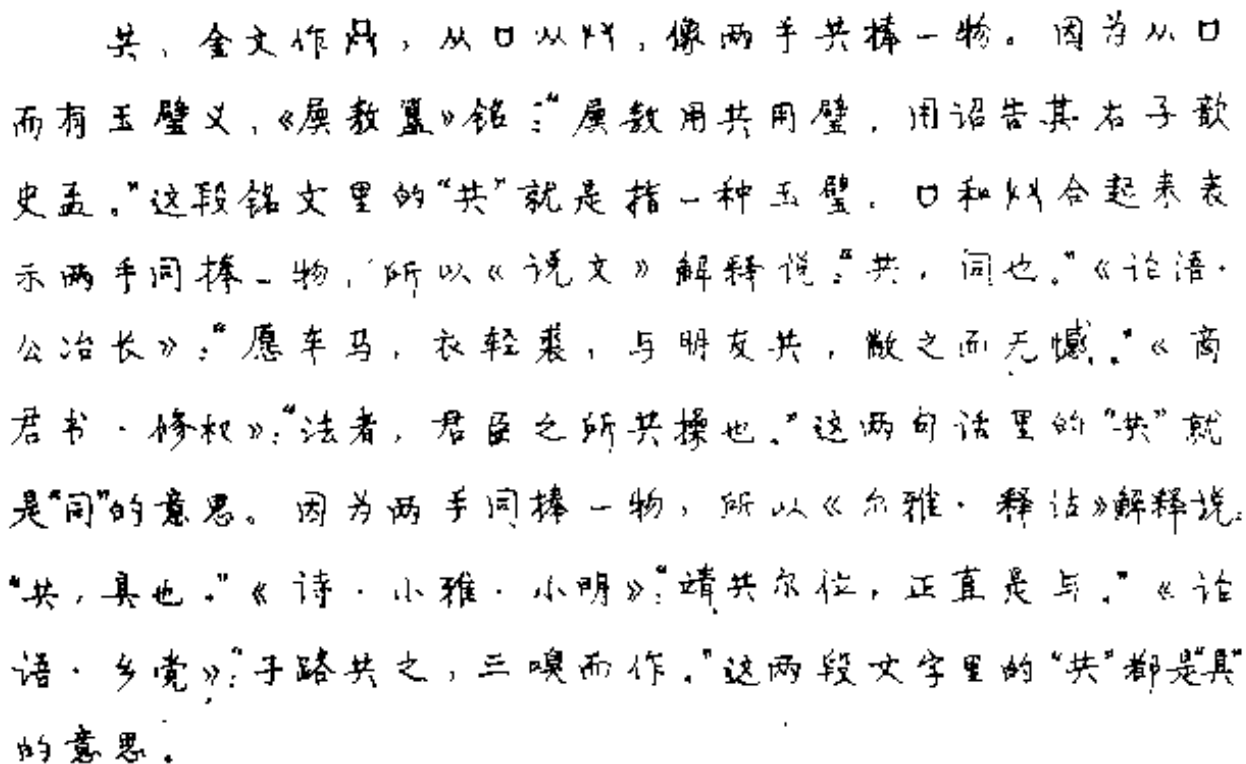 共，金文作，从口从廾，像两手共捧一物。因为从口
而有玉璧义，《㞟敖簋》铭：“㞟敖用共用璧，用诏告其右子歆
史孟。”这段铭文里的“共”就是指一种玉璧，口和廾合起来表
示两手同捧一物，所以《说文》解释说：“共，同也。”《论语·
公冶长》：“愿车马，衣轻裘，与朋友共，敝之而无憾。”《商
君书·修权》：“法者，君臣之所共操也。”这两句话里的“共”就
是“同”的意思。因为两手同捧一物，所以《尔雅·释诂》解释说：
“共，具也。”《诗·小雅·小明》：“靖共尔位，正直是与。”《论
语·乡党》：“子路共之，三嗅而作。”这两段文字里的“共”都是“具”
的意思。